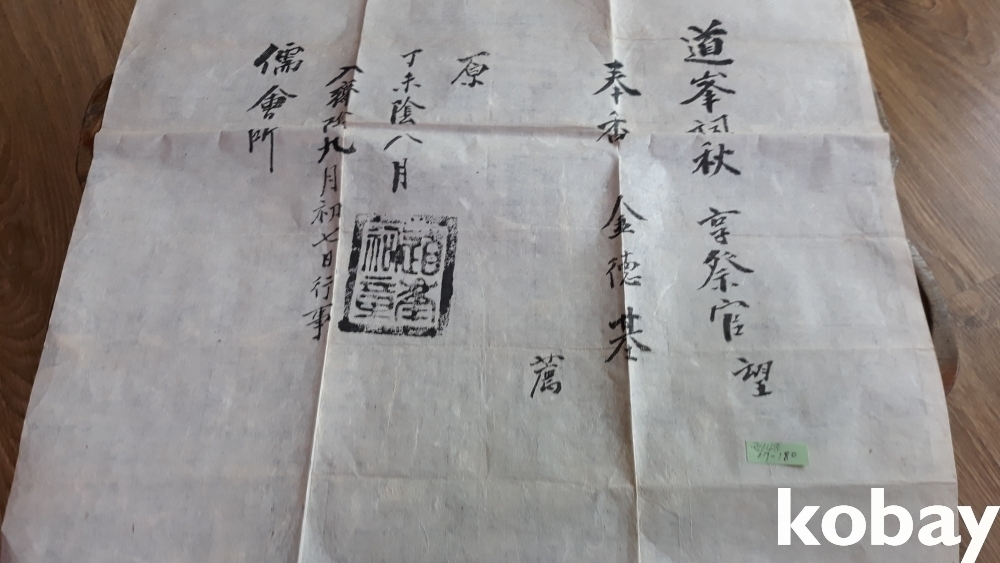 道峯祠秋 享祭官 望
奉香 金德基
薦
原
丁未陰八月
入齋陰九月初七日行事
儒會所
17-180
kobay